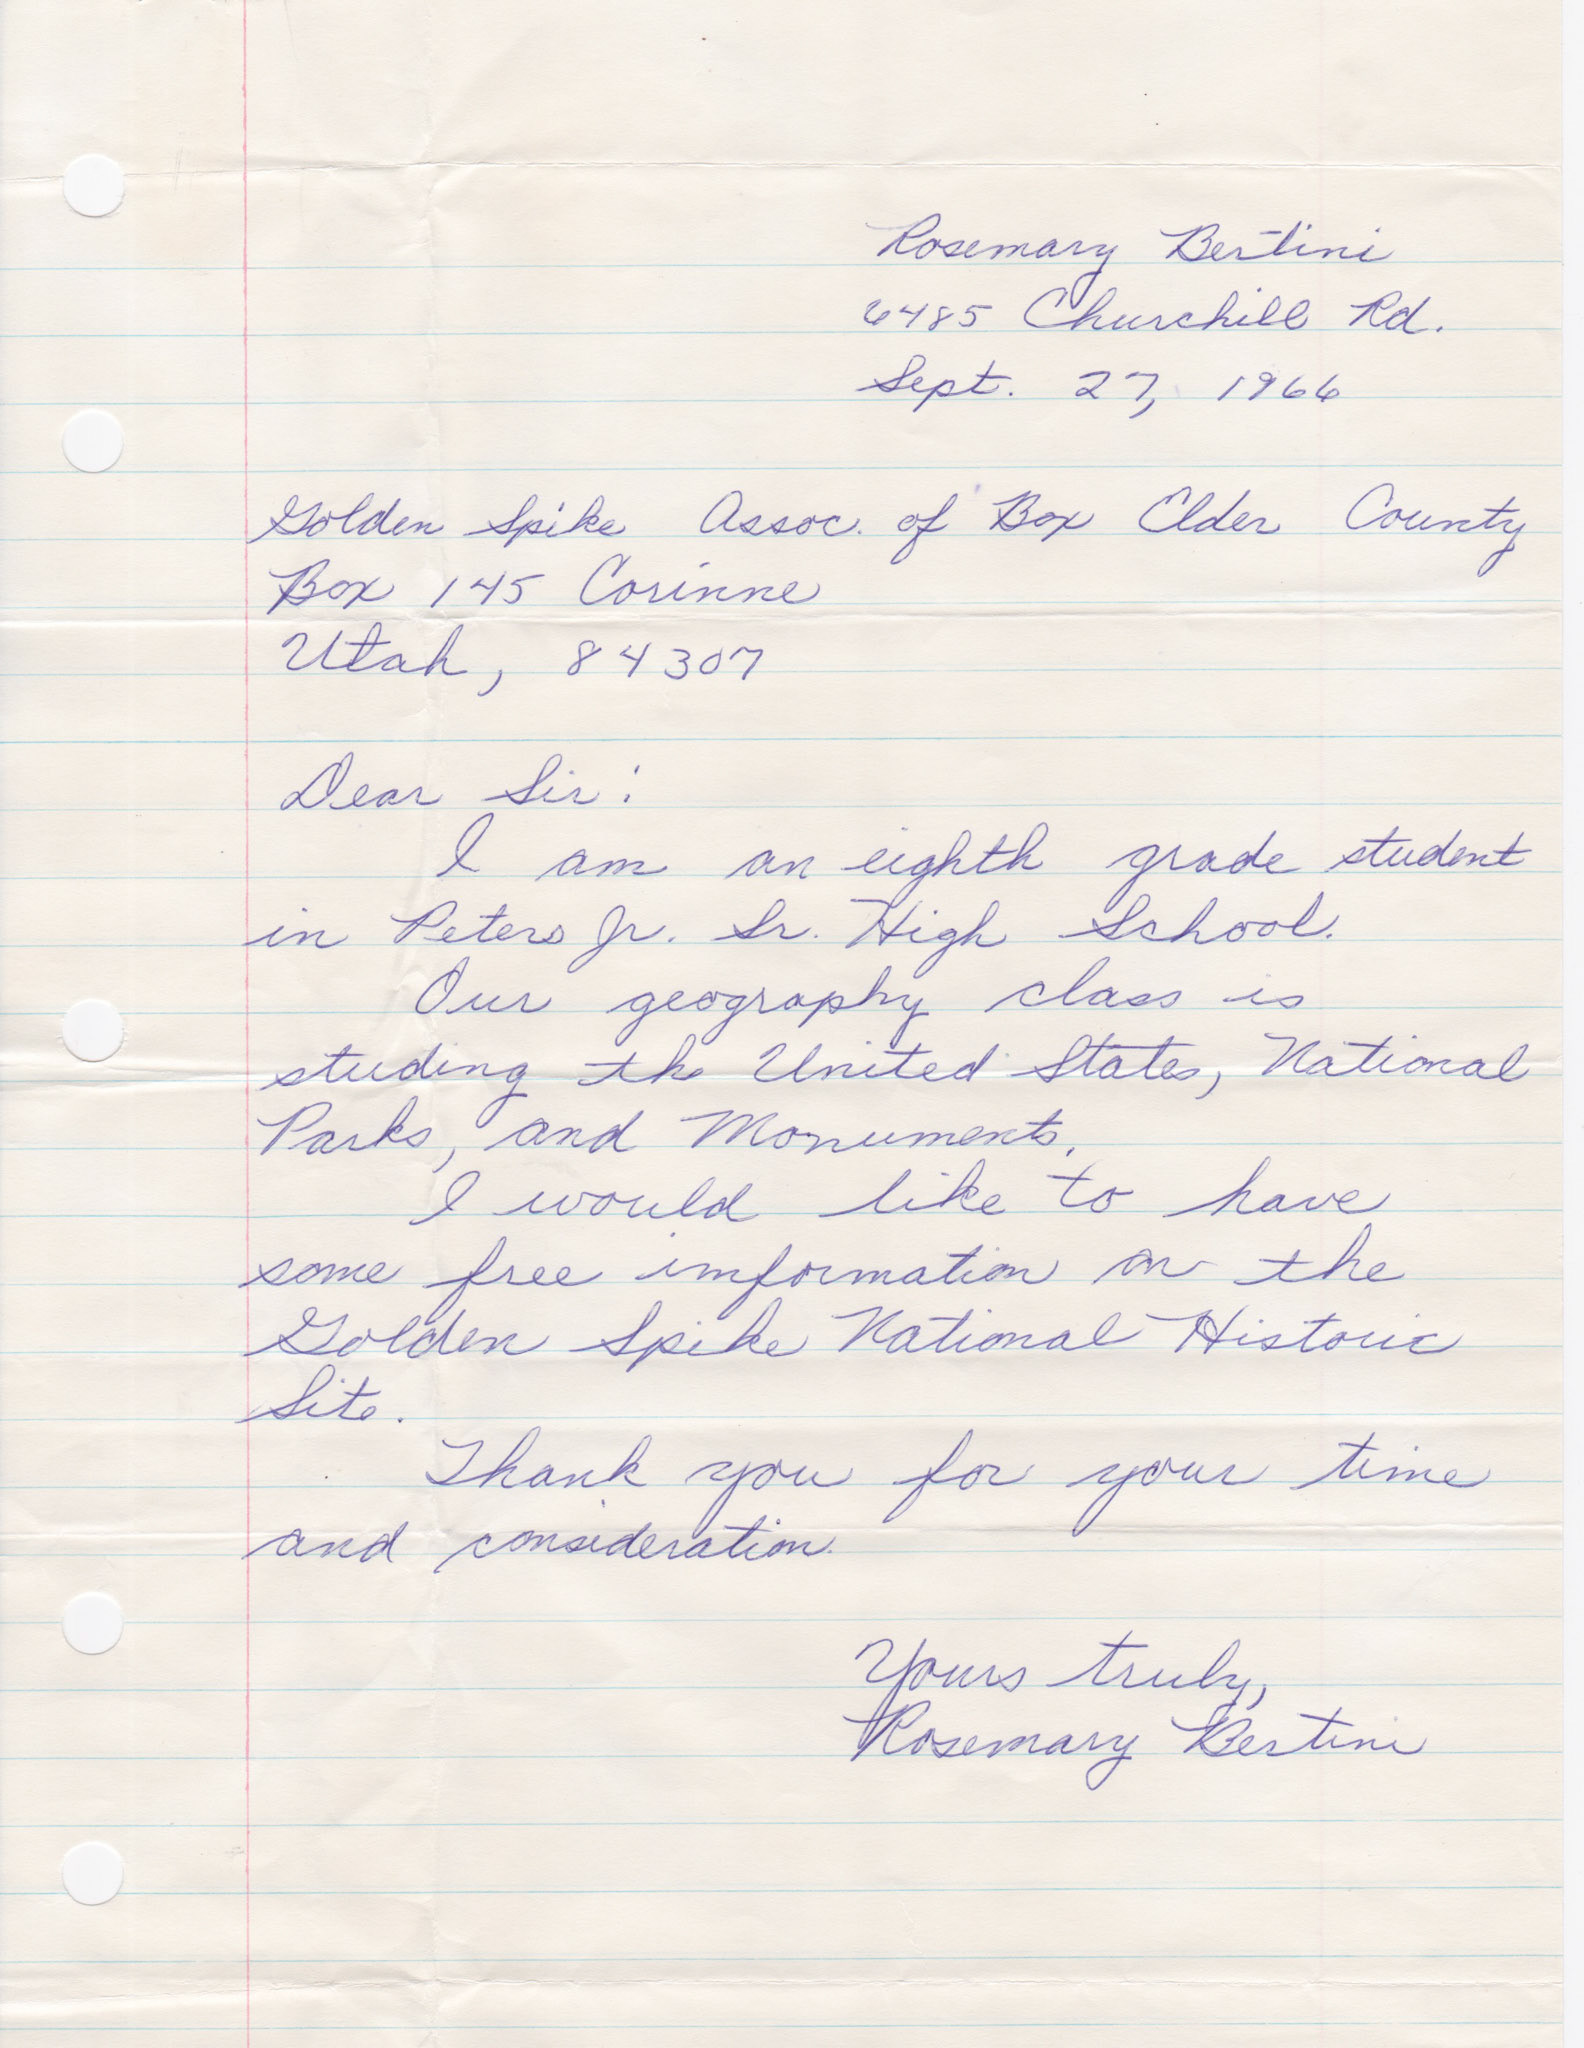 Rosemary Bertini
6485 Churchill Rd.
Sept. 27, 1966
Golden Spike Assoc. of Box Elder County
Box 145 Corinne
Utah, 84307
Dear Sir:
I am an eighth grade student
in Peters Jr. Sr. High School.
Our geography class is
studing the United States, National
Parks, and Monuments.
I would like to have
some free information on the
Golden Spike National Historic
Site.
Thank you for your time
and consideration.
Yours truly,
Rosemary Bertini